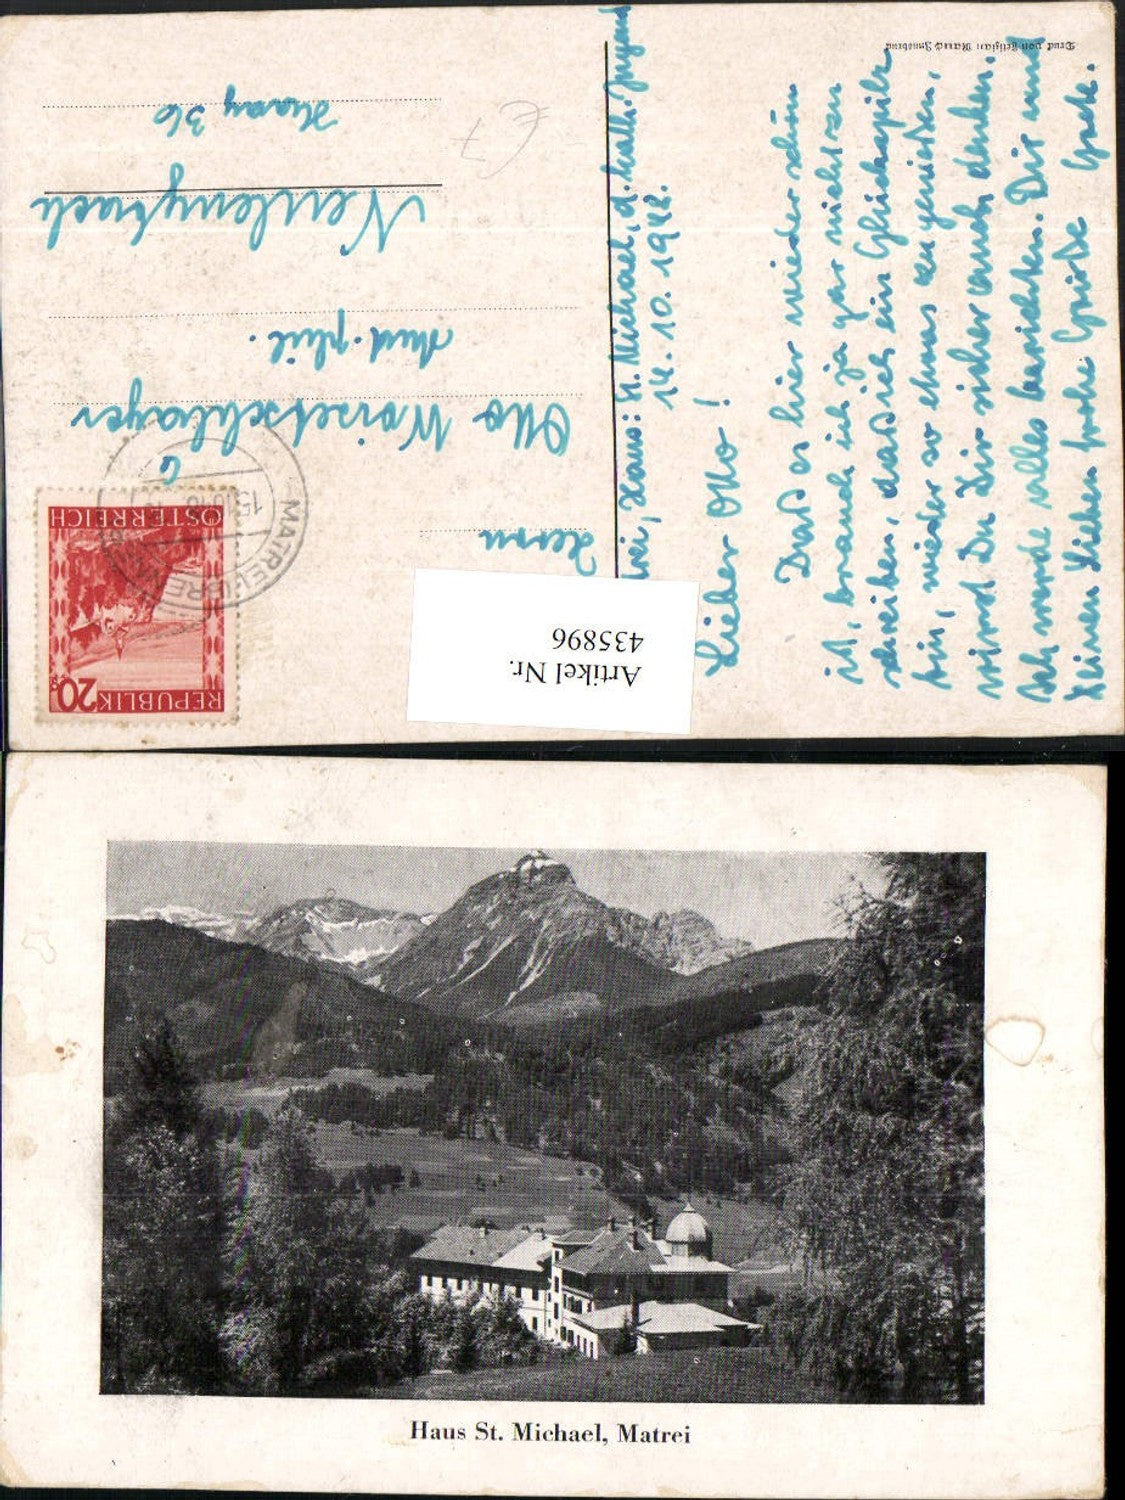 Matrei, Haus: St. Michael, d. kath. Jugend
14.10.1948.
Lieber Otto!
Dass es hier wieder schön
ist, brauch ich ja gar nicht zu
schreiben, dass ich ein Glückspilz
bin, wieder so etwas zu genießen,
wirst Du Dir sicher auch denken.
Ich werde alles berichten. Dir und
Deinen Lieben frohe Grüße Grete.
Herrn
Otto Woisetschläger
stud. phil.
Neulengbach
36
€ 7
REPUBLIK 20
ÖSTERREICH
15.10.48
Artikel Nr.
435896
Druck von Felizian Rauch Innsbruck
Haus St. Michael, Matrei